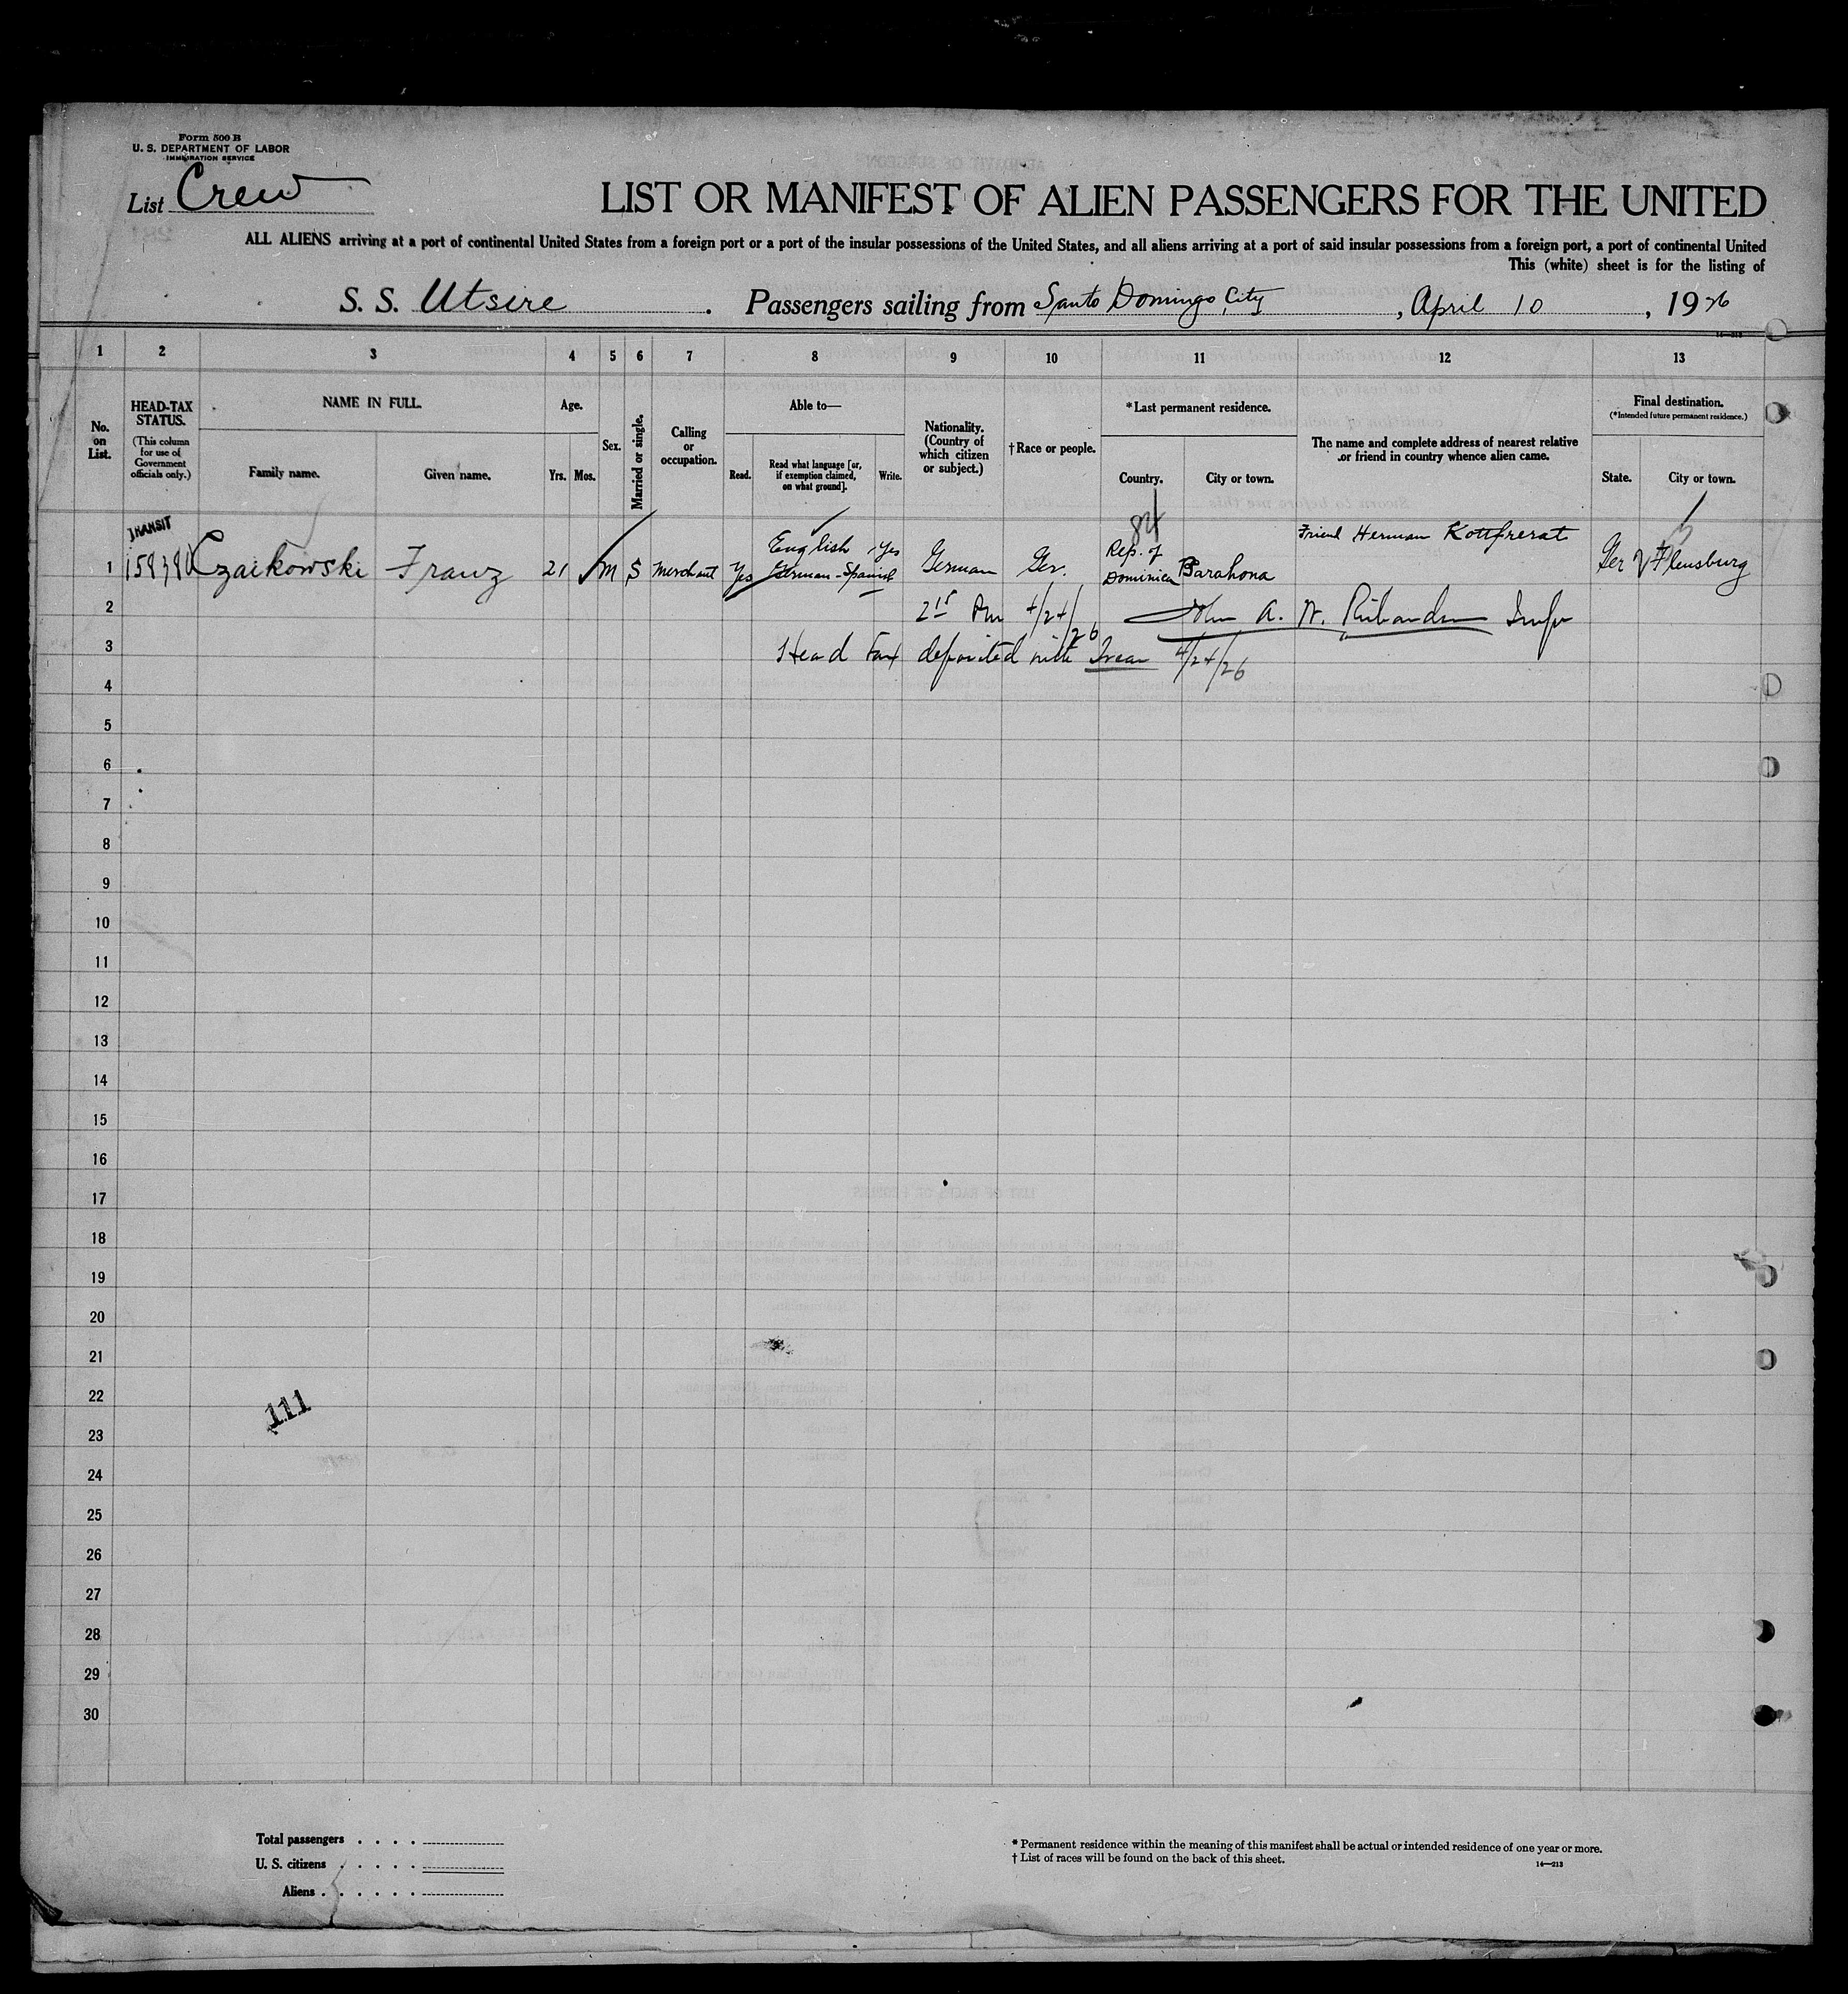 Form 500 B
U. S. DEPARTMENT OF LABOR
IMMIGRATION SERVICE
List Crew
LIST OR MANIFEST OF ALIEN PASSENGERS FOR THE UNITED
ALL ALIENS arriving at a port of continental United States from a foreign port or a port of the insular possessions of the United States, and all aliens arriving at a port of said insular possessions from a foreign port, a port of continental United
This (white) sheet is for the listing of
S. S. Utsire. Passengers sailing from Santo Domingo City, April 10, 1926
1 2 3 4 5 6 7 8 9 10 11 12 13
No. on List.
HEAD-TAX STATUS.
(This column for use of Government officials only.)
NAME IN FULL.
Family name. Given name.
Age.
Yrs. Mos.
Sex.
Married or single.
Calling or occupation.
Able to—
Read. Read what language [or, if exemption claimed, on what ground]. Write.
Nationality. (Country of which citizen or subject.)
†Race or people.
*Last permanent residence.
Country. City or town.
The name and complete address of nearest relative or friend in country whence alien came.
Final destination.
(*Intended future permanent residence.)
State. City or town.
TRANSIT
84
English Yes
Rep. of
Friend Herman
1 Czaikowski Franz 21 M S Merchant Yes German-Spanish German Ger. Dominica Barahona Ger Flensburg
2 4/24/26 John A. W.
3 Head Tax deposited with 4/24/26
4
5
6
7
8
9
10
11
12
13
14
15
16
17
18
19
20
21
22
23
24
25
26
27
28
29
30
111
Total passengers . . . .
U. S. citizens . . . . .
Aliens . . . . . .
* Permanent residence within the meaning of this manifest shall be actual or intended residence of one year or more.
† List of races will be found on the back of this sheet.
14—213